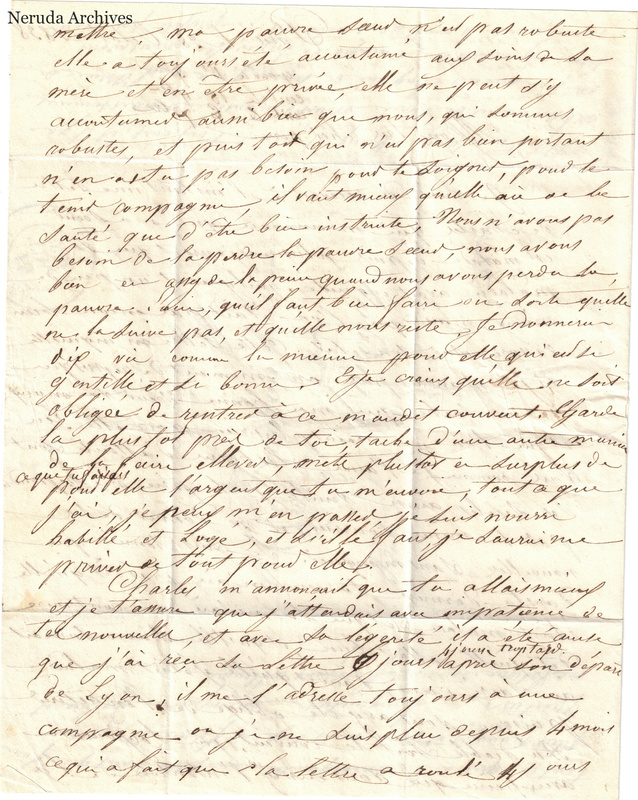 Neruda Archives
mettre, ma pauvre soeur n'est pas robuste
elle a toujours été accoutumé aux soins de sa
mère et en être privée elle ne peut s'y
accoutumer aussi bien que nous, qui sommes
robustes, et puis toi qui n'est pas bien portant
n'en as tu pas besoin pour te soigner, pour te
tenir compagnie, il vaut mieux qu'elle aie de la
santé que d'être bien instruite, Nous n'avons pas
besoin de la perdre la pauvre soeur, nous avons
bien eu assez de la peine quand nous avons perdu la
pauvre qu'il faut bien faire en sorte qu'elle
ne la suive pas, et qu'elle nous reste. Je donnerai
dix vie comme la mienne pour elle qui est si
gentille et si bonne. Et je crains qu'elle ne soit
obligée de rentrer à ce maudit couvent. Garde
la plus tot près de toi, tache d'une autre manière
de la faire ellever, mets plustot en surplus de
ce que tu fais
pour elle l'argent que tu m'envoie, tout ce que
j'ai, je peux m'en passer je suis nourri
habillé et logé, et s'il le faut je saurai me
priver de tout pour elle.
Charles m'annonçait que tu allais mieux
et je t'assure que j'attendais avec impatience de
tes nouvelles, et avec sa legereté il a été cause
que j'ai reçu sa lettre jours après son départ
4 jours trop tard
de Lyon, il me l'adresse toujours a une
compagnie ou je ne suis plus depuis 4 mois
ce qui a fait que la lettre a roulé 4 jours